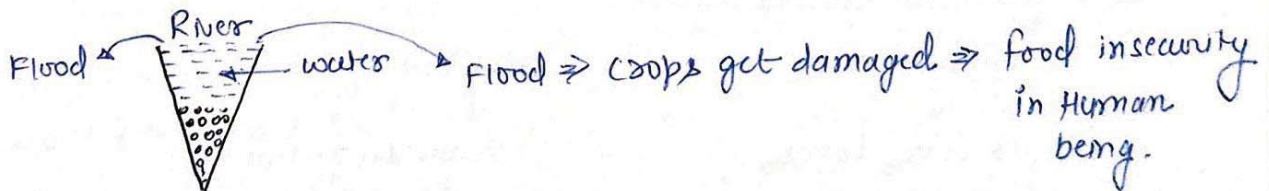 River
Flood ← water Flood ⇒ crops get damaged ⇒ food insecurity
in Human
being.